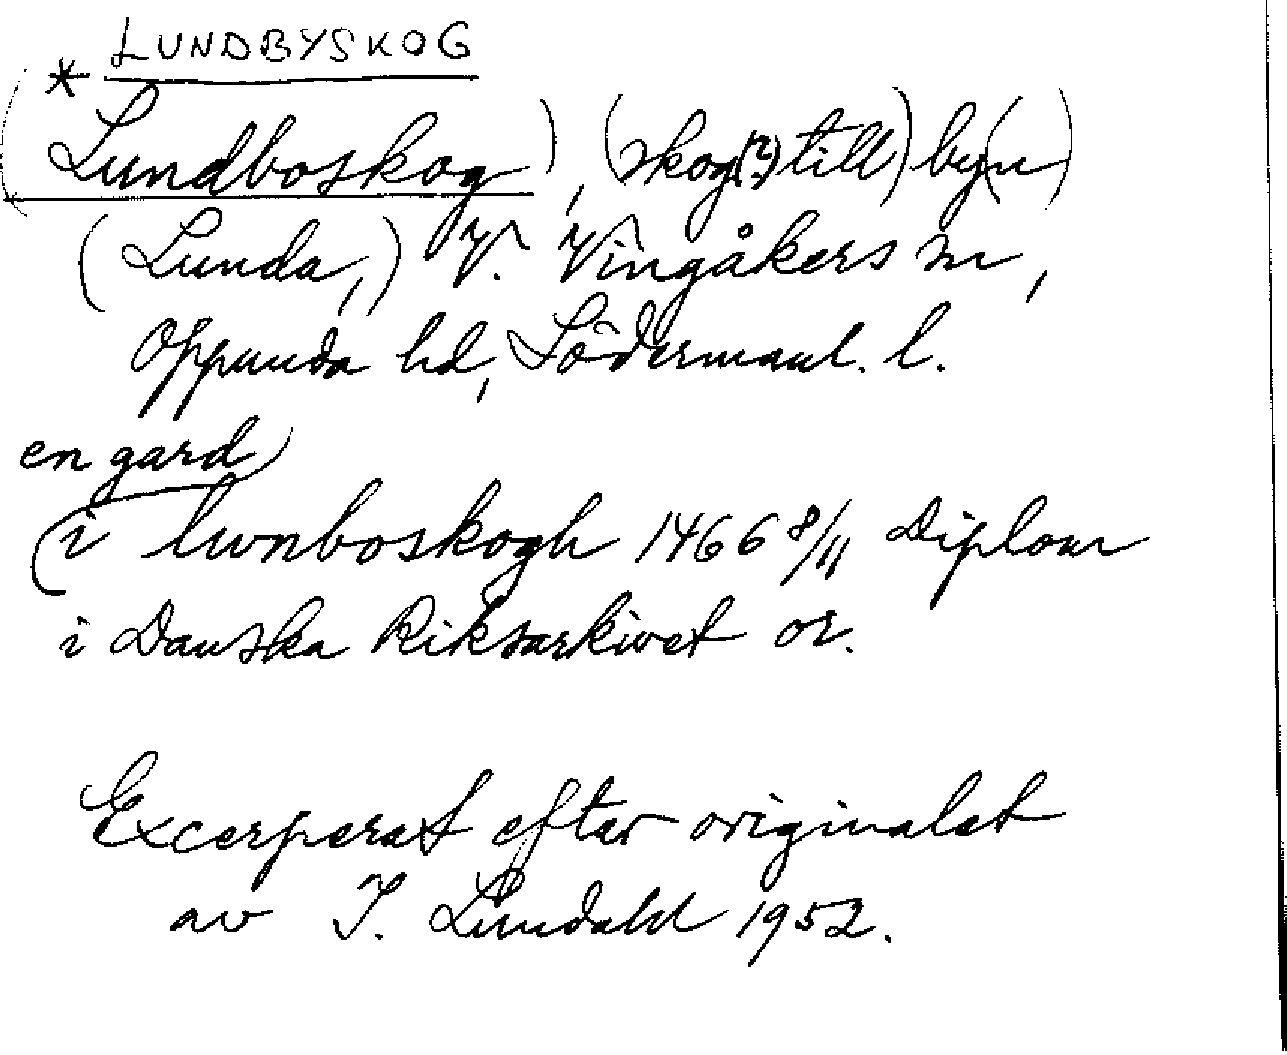 LUNDBYSKOG
* (Lundboskog), (skog(?) till) by(n)
(Lunda,) V. Vingåkers sn,
Oppunda hd, Södermanl. l.
en gard)
(i lwnboskogh 1466 8/11 Diplom
i Danska Riksarkivet or.
Excerperat efter originalet
av I. Lindahl 1952.